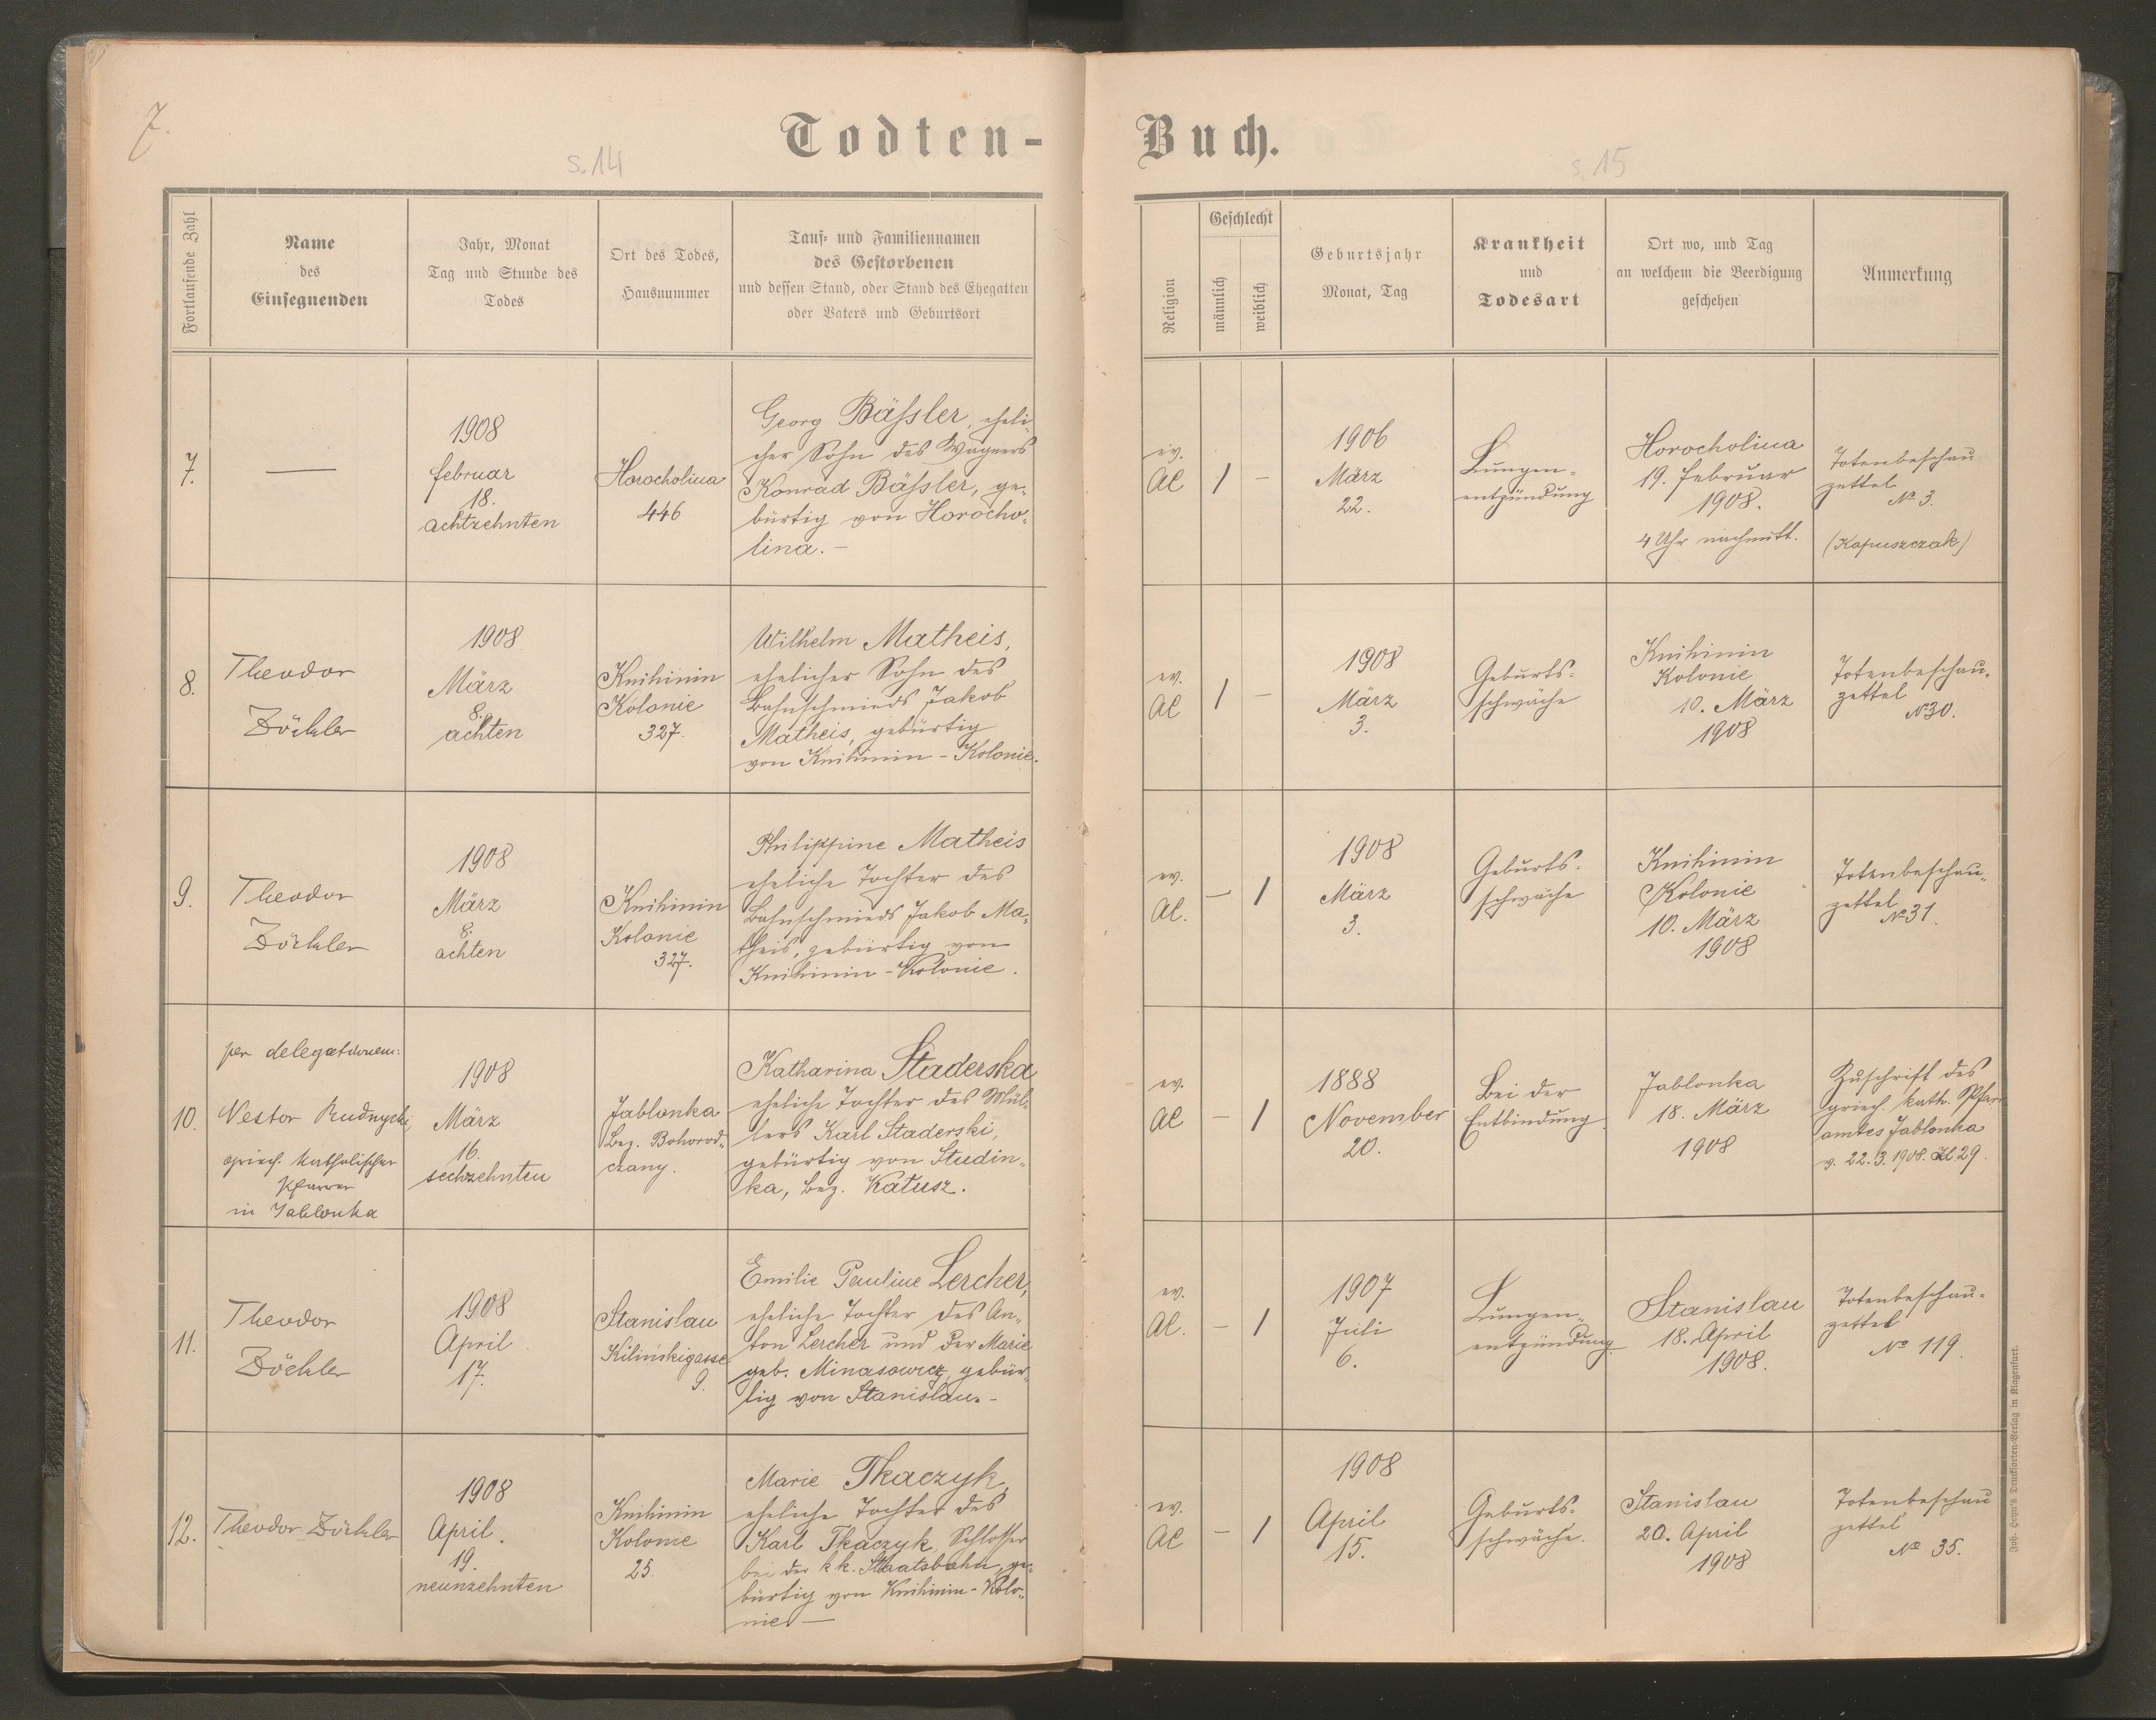 7.
s. 14
s. 15
Todten-Buch.
Fortlaufende Zahl
Name
des
Einsegnenden
Jahr, Monat
Tag und Stunde des
Todes
Ort des Todes,
Hausnummer
Tauf- und Familiennamen
des Gestorbenen
und dessen Stand, oder Stand des Ehegatten
oder Vaters und Geburtsort
Religion
Geschlecht
männlich
weiblich
Geburtsjahr
Monat, Tag
Krankheit
und
Todesart
Ort wo, und Tag
an welchem die Beerdigung
geschehen
Anmerkung
7.
—
1908
februar
18.
achtzehnten
Horocholina
446
Georg Bäßler, eheli-
cher Sohn des Wagners
Konrad Bäßler, ge-
bürtig von Horocho-
lina. –
ev.
AC
1
–
1906
März
22.
Lungen-
entzündung
Horocholina
19. februar
1908.
4 Uhr nachmitt.
Totenbeschau
zettel
No 3.
(Kapuszczak)
8.
Theodor
Zöckler
1908
März
8.
achten
Knihinin
Kolonie
327.
Wilhelm Matheis,
ehelicher Sohn des
Bahnschmieds Jakob
Matheis, gebürtig
von Knihinin - Kolonie.
ev.
AC
1
–
1908
März
3.
Geburts-
schwäche
Knihinin
Kolonie
10. März
1908
Totenbeschau-
zettel
No 30.
9.
Theodor
Zöckler
1908
März
8.
achten
Knihinin
Kolonie
327.
Philippine Matheis
eheliche Tochter des
Bahnschmieds Jakob Ma-
theis, gebürtig von
Knihinin - Kolonie.
ev.
AC.
–
1
1908
März
3.
Geburts-
schwäche
Knihinin
Kolonie
10. März
1908
Totenbeschau-
zettel
No 31.
10.
per delegationem:
Nestor Rudnycki,
griech. katholischer
Pfarrer
in Jablonka
1908
März
16.
sechzehnten
Jablonka
Bez. Bohorod-
czany.
Katharina Staderska
eheliche Tochter des Mül-
lers Karl Staderski,
gebürtig von Studin-
ka, Bez. Katusz.
ev.
AC
–
1
1888
November
20.
Bei der
Entbindung
Jablonka
18. März
1908
Zuschrift des
griech. kath. Pfarr
amtes Jablonka
v. 22. 3. 1908. Zl 29.
11.
Theodor
Zöckler
1908
April
17.
Stanislau
Kilinskigasse
9.
Emilie Pauline Lercher,
eheliche Tochter des An-
ton Lercher und der Marie
geb. Minasowicz, gebür-
tig von Stanislau. –
ev.
AC.
–
1
1907
Juli
6.
Lungen-
entzündung
Stanislau
18. April
1908.
Totenbeschau-
zettel
No 119.
12.
Theodor Zöckler
1908
April.
19.
neunzehnten
Knihinin
Kolonie
25.
Marie Tkaczyk,
eheliche Tochter des
Karl Tkaczyk, Schlosser
bei der k k. Staatsbahn, ge-
bürtig von Knihinin - Kolo-
nie. —
ev.
AC
–
1
1908
April
15.
Geburts-
schwäche.
Stanislau
20. April
1908
Totenbeschau
zettel
No 35.
Joh. Heyn's Drucksorten-Verlag in Klagenfurt.